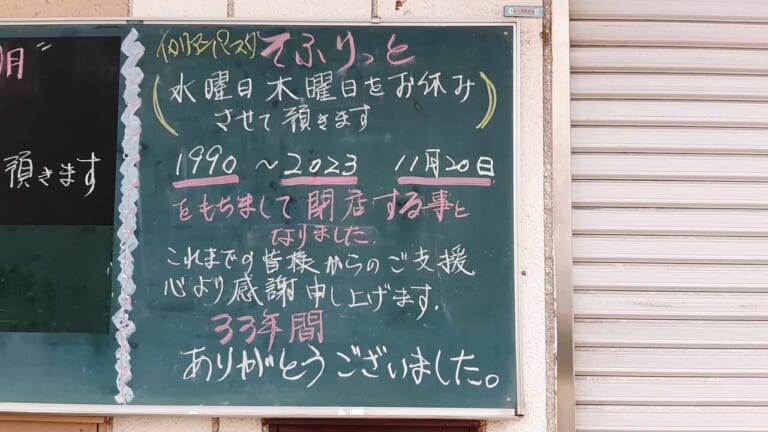 イタリアンパスタ そふりっと
(水曜日木曜日をお休み
させて頂きます)
1990 〜 2023 11月20日
をもちまして閉店する事と
なりました.
これまでの皆様からのご支援
心より感謝申し上げます.
33年間
ありがとうございました。
月"
頂きます